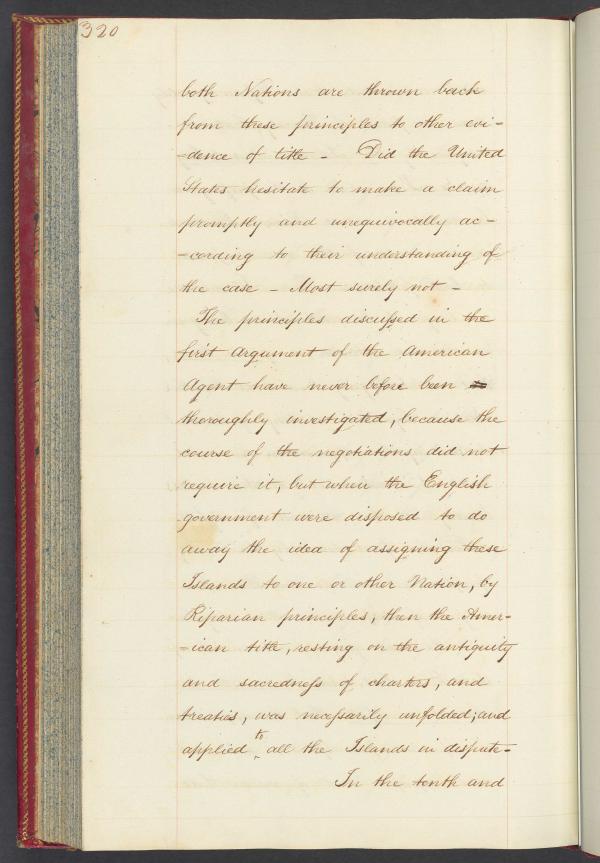 320
both Nations are thrown back
from these principles to other evi-
=dence of title - Did the United
States hesitate to make a claim
promptly and unequivocally ac-
=cording to their understanding of
the case - Most surely not -
The principles discussed in the
first Argument of the American
Agent have never before been
thoroughly investigated, because the
course of the negotiations did not
require it, but when the English
government were disposed to do
away the idea of assigning these
Islands to one or other Nation, by
Riparian principles, then the Amer-
=ican title, resting on the antiquity
and sacredness of charters, and
treaties, was necessarily unfolded; and
applied to all the Islands in dispute-
In the tenth and